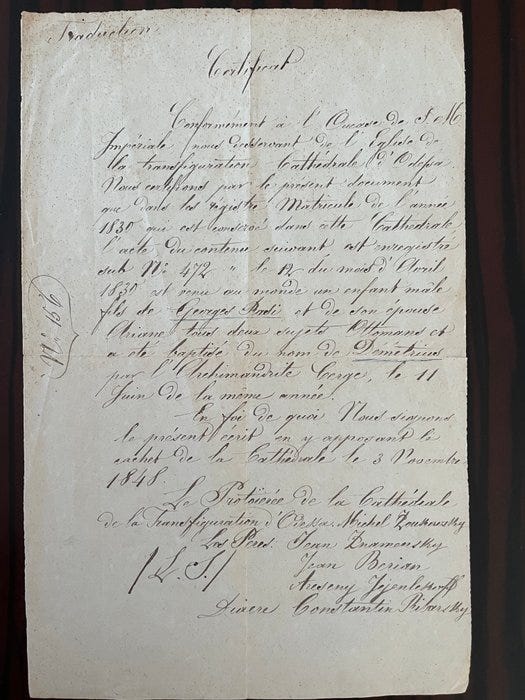 Traduction
Certificat
Conformément à l'Oucase de S. M.
Impériale, nous desservant de l'Eglise de
la transfiguration Cathédrale d'Odessa
Nous certifions par le présent document
que dans les régistré Matricule de l'année
1830 qui est conservé dans cette Cathédrale
l'acte du contenu suivant est enregistré
sub Nº 472 " le 12 du mois d'Avril
1830 est venu au monde un enfant mâle
fils de Georges Rodi et de son épouse
Ariane tous deux sujets Ottomans et
a été baptisé du nom de Démétrius
par l'Archimandrite Cerge, le 11
Juin de la même année.
En foi de quoi Nous signons
le présent écrit en y apposant le
cachet de la Cathédrale le 3 Novembre
1848.
Le Protoïérée de la Cathédrale
de la Transfiguration d'Odessa Michel
Les Peres. Jean Znamensky
Jean Berian
Arseny
/L. S./
Diacre Constantin Ribarsky
Nº 156